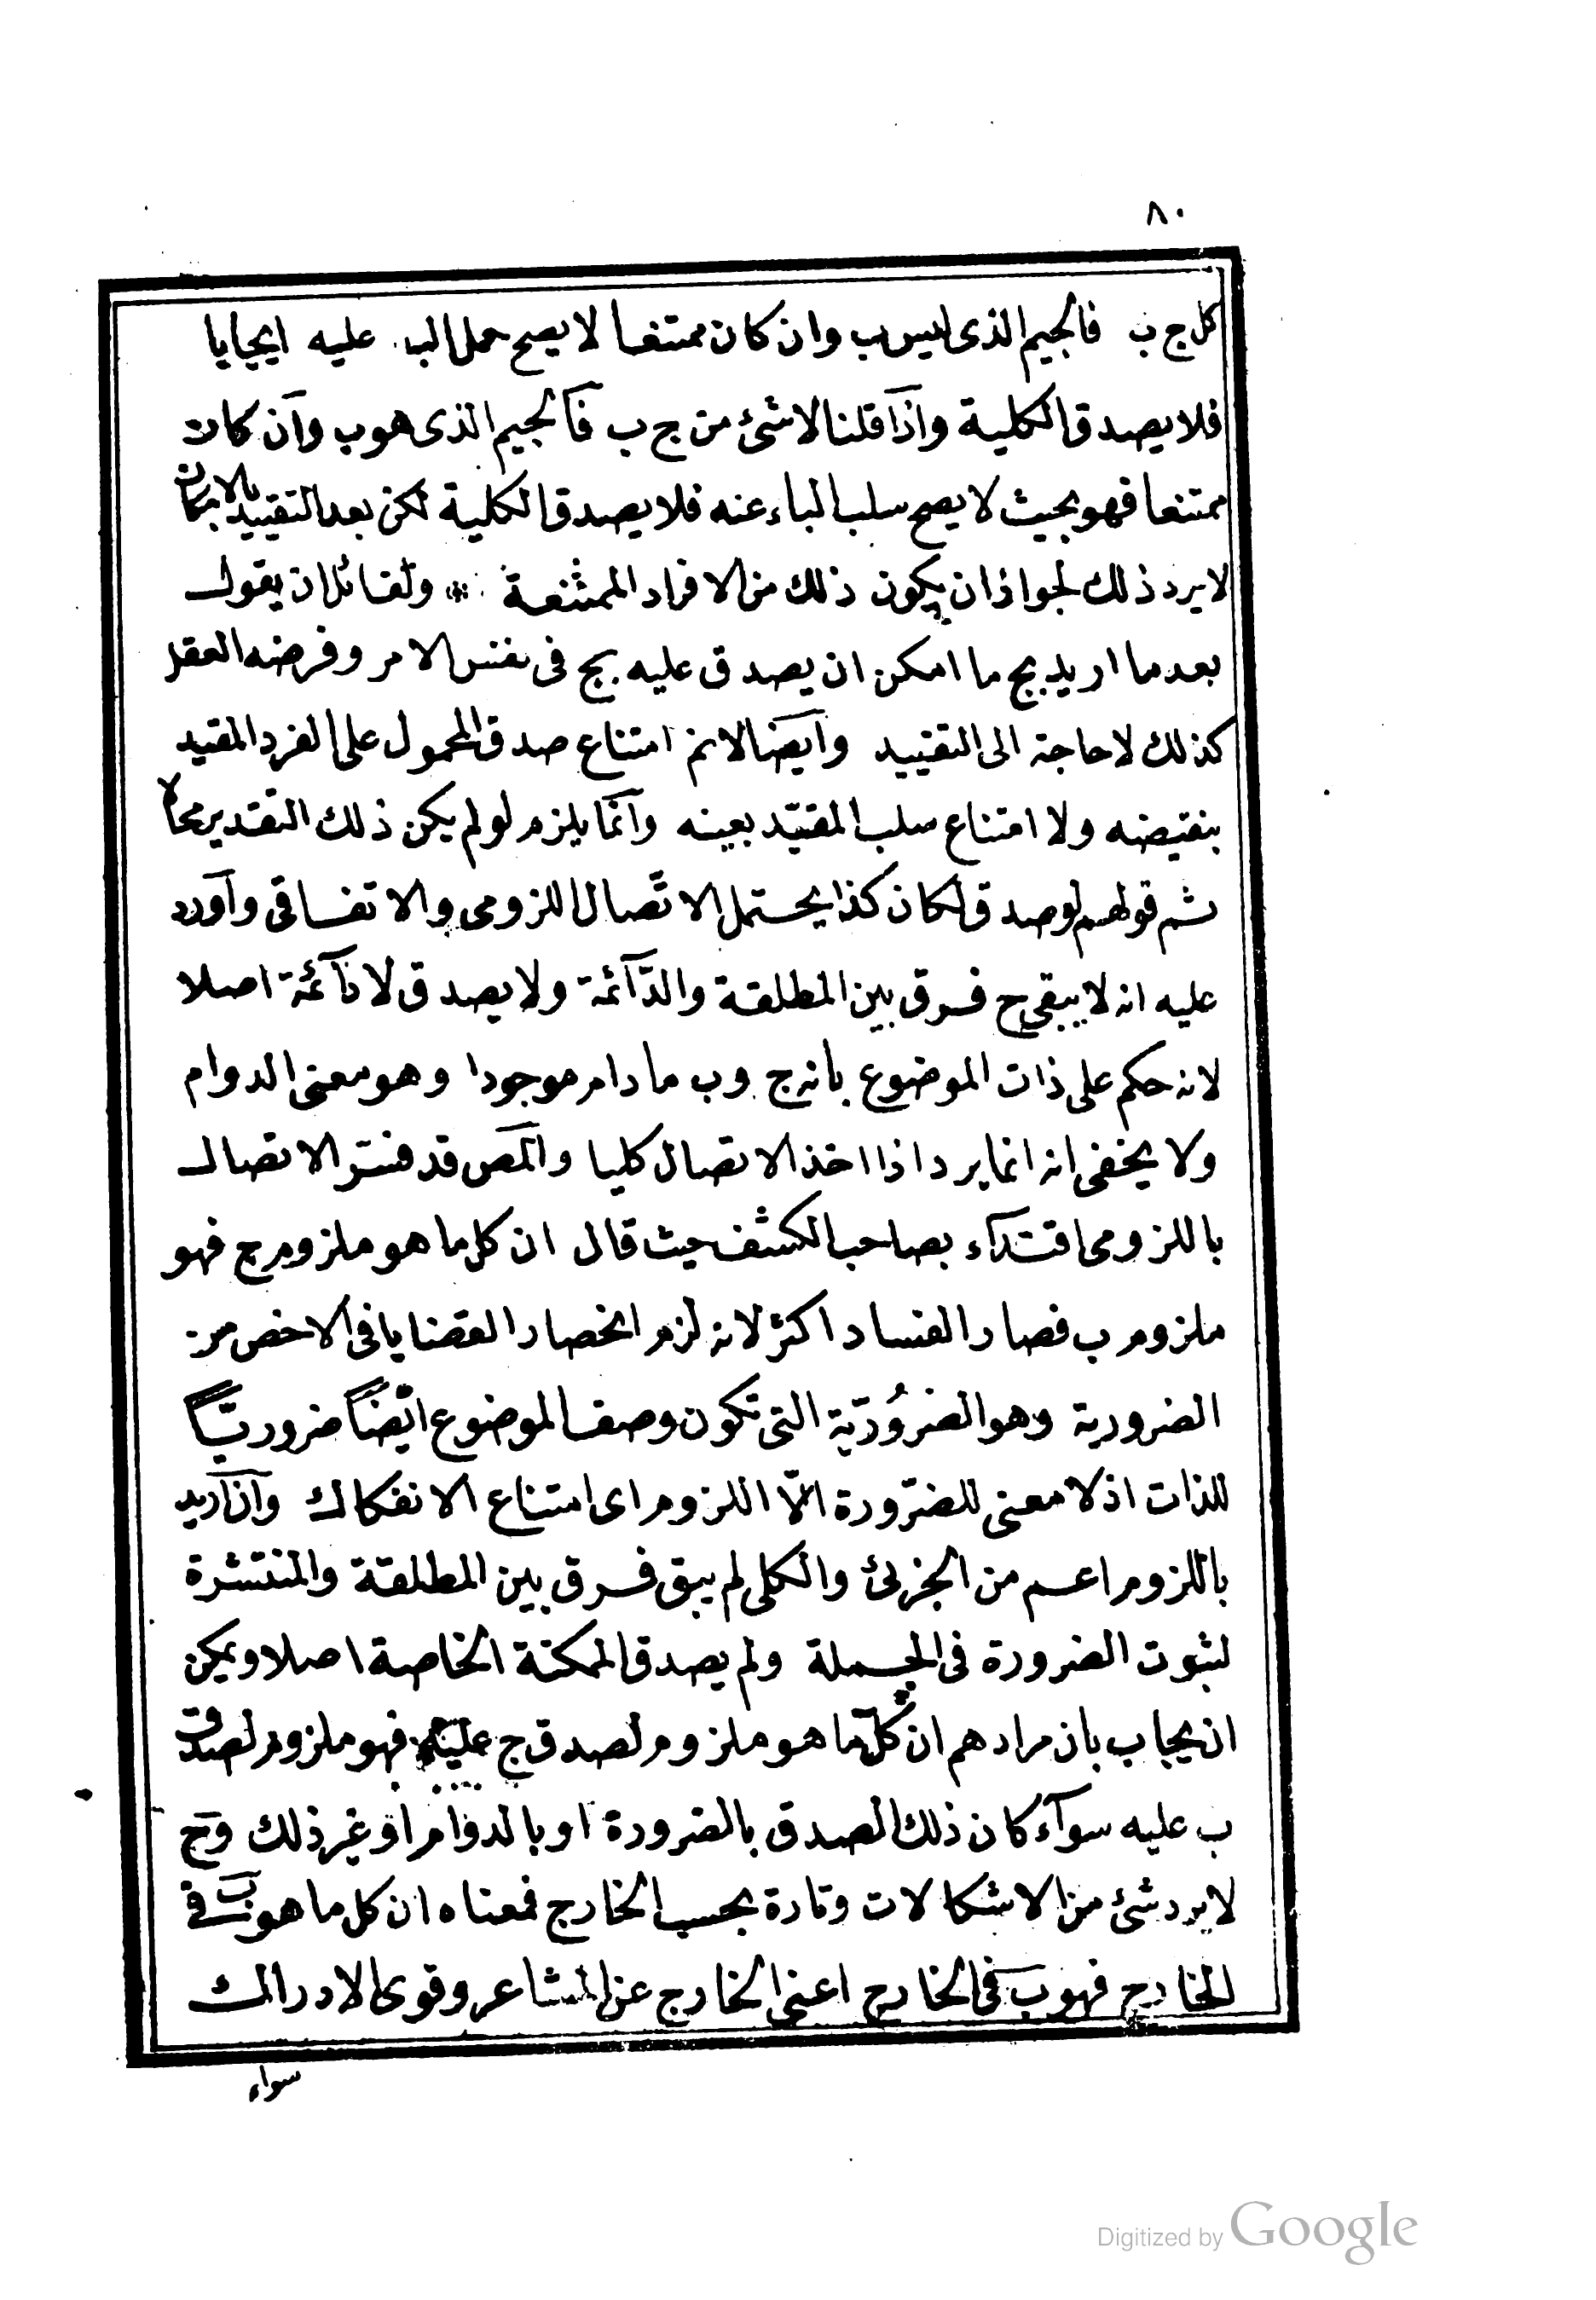 ٨٠
كل ج ب فالجيم الذى ليس ب وان كان ممتنعا لا يصح حمل الب عليه ايجابا
فلا يصدق الكلية واذا قلنا لا شئ من ج ب فالجيم الذى هو ب وان كان
ممتنعا فهو بحيث لا يصح سلب الباء عنه فلا يصدق الكلية لكن بعد التقييد بالامكان
لا يرد ذلك لجواز ان يكون ذلك من الافراد الممتنعة * ولقائل ان يقول
بعد ما اريد بج ما امكن ان يصدق عليه ج فى نفس الامر وفرضه العقل
كذلك لا حاجة الى التقييد وايضا لانم امتناع صدق المحمول على الفرد المقيد
بنقيضه ولا امتناع سلب المقيّد بعينه وانما يلزم لو لم يكن ذلك التقدير محالا
ثم قولهم لو صدق لكان كذا يحتمل الاتّصال اللزومى والاتفاقى واورد
عليه انه لا يبقى ح فرق بين المطلقة والدّآئمة ولا يصدق لا دآئمة اصلا
لانه حكم على ذات الموضوع بانه ج وب ما دام موجودا وهو معنى الدوام
ولا يخفى انه انما يرد اذا اخذ الاتصال كليا والمص قد فسّر الاتصال
باللزومى اقتدآء بصاحب الكشف حيث قال ان كل ما هو ملزوم ج فهو
ملزوم ب فصار الفساد اكثر لانه لزم انحصار القضايا فى الاخص من
الضرورية وهو الضرُوريّة التى تكون وصف الموضوع ايْضًا ضروريًّا
للذات اذ لا معنى للضّرورة الّا اللزوم اى امتناع الانفكاك وان اريد
باللزوم اعم من الجزئ والكلى لم يبق فرق بين المطلقة والمنتشرة
لثبوت الضرورة فى الجملة ولم يصدق الممكنة الخاصة اصلا ويمكن
ان يجاب بان مرادهم ان كلّ ما هو ملزوم لصدق ج عليه فهو ملزوم لصدق
ب عليه سوآء كان ذلك الصدق بالضرورة او بالدوام او غير ذلك وح
لا يرد شئ من الاشكالات وتارة بحسب الخارج فمعناه ان كل ما هو ب فى
الخارج فهو ب فى الخارج اعنى الخارج عن المشاعر وقوى الادراك
سواء
Digitized by Google